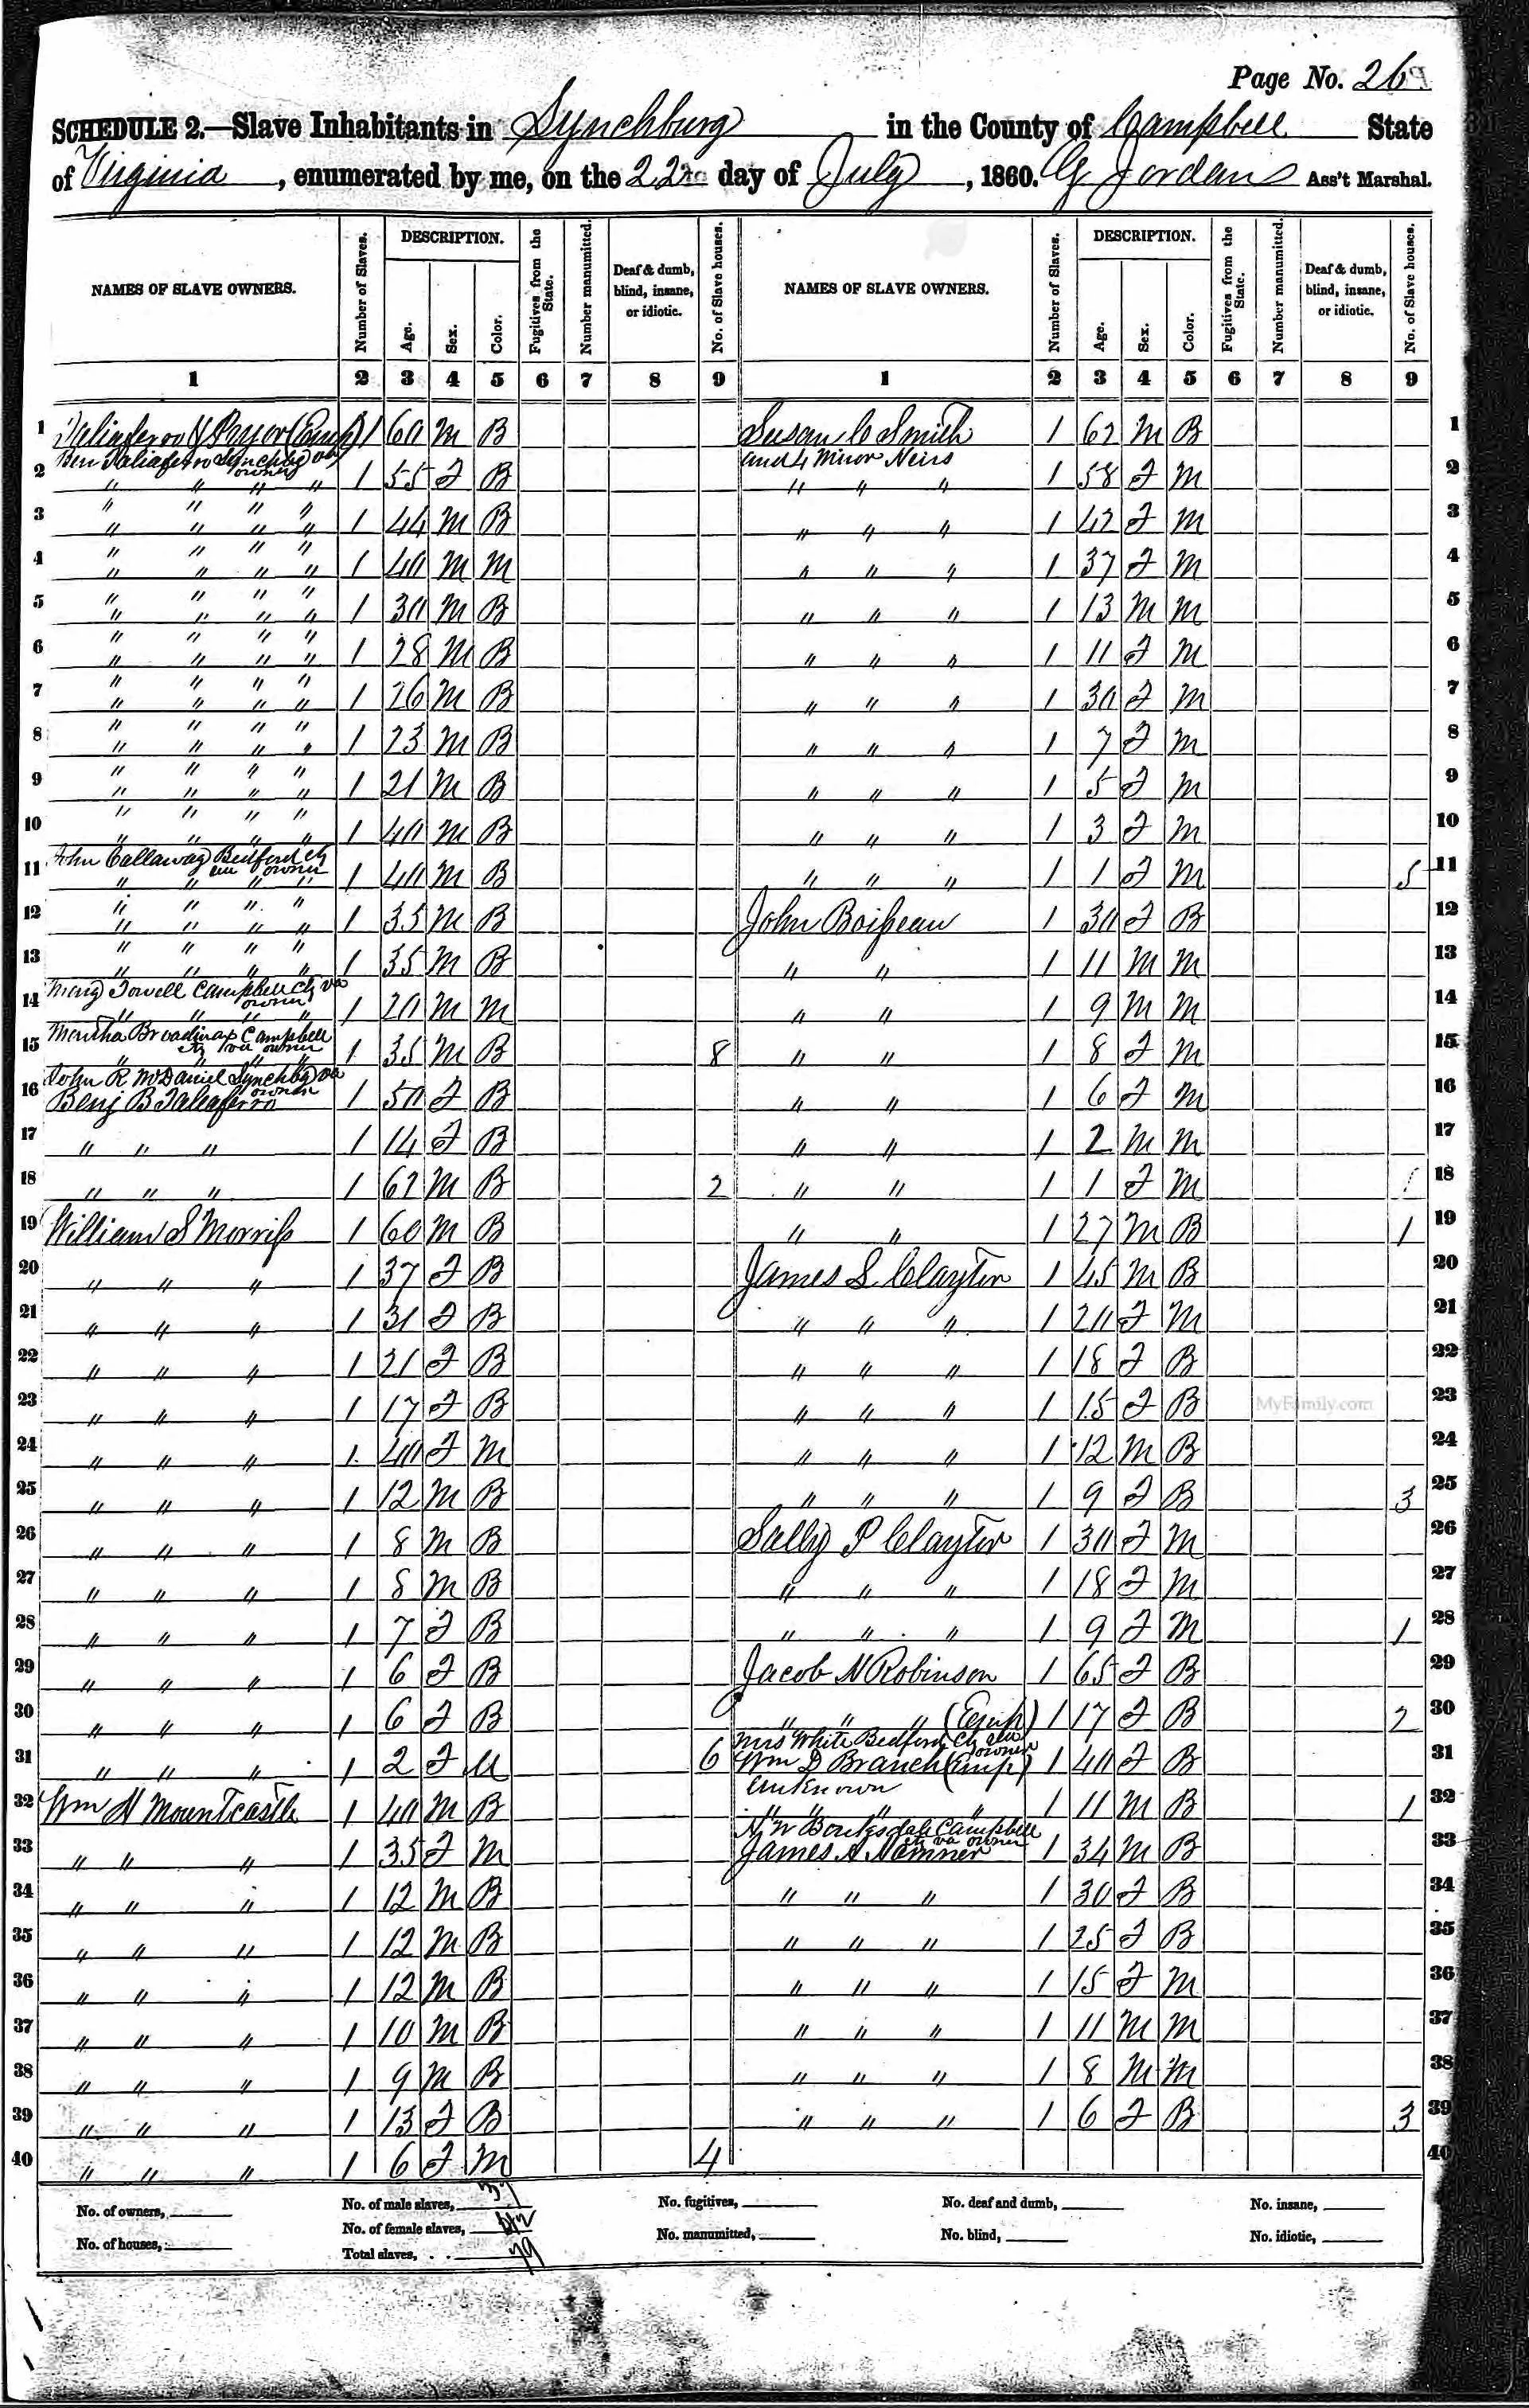 Page No. 26
SCHEDULE 2.—Slave Inhabitants in Lynchburg in the County of Campbell State
of Virginia, enumerated by me, on the 22nd day of July, 1860. G Jordan Ass't Marshal.
NAMES OF SLAVE OWNERS. Number of Slaves. DESCRIPTION. Age. Sex. Color. Fugitives from the State. Number manumitted. Deaf & dumb, blind, insane, or idiotic. No. of Slave houses. NAMES OF SLAVE OWNERS. Number of Slaves. DESCRIPTION. Age. Sex. Color. Fugitives from the State. Number manumitted. Deaf & dumb, blind, insane, or idiotic. No. of Slave houses.
1 2 3 4 5 6 7 8 9 1 2 3 4 5 6 7 8 9
1 Taliaferro & (Emp) 1 60 M B Susan C Smith 1 62 M B 1
Ben Taliaferro Lynchbg va owner and 4 Minor Heirs
2 " " " " 1 55 F B " " " 1 58 F M 2
" " " "
3 " " " " 1 44 M B " " " 1 42 F M 3
" " " "
4 " " " " 1 40 M M " " " 1 37 F M 4
" " " "
5 " " " " 1 30 M B " " " 1 13 M M 5
" " " "
6 " " " " 1 28 M B " " " 1 11 F M 6
" " " "
7 " " " " 1 26 M B " " " 1 30 F M 7
" " " "
8 " " " " 1 23 M B " " " 1 7 F M 8
" " " "
9 " " " " 1 21 M B " " " 1 5 F M 9
" " " "
10 " " " " 1 40 M B " " " 1 3 F M 10
John Callaway Bedford cty owner
11 " " " " 1 40 M B " " " 1 1 F M 5 11
" " " "
12 " " " " 1 35 M B John Boisseau 1 30 F B 12
" " " "
13 " " " " 1 35 M B " " 1 11 M M 13
Mary Campbell Cty va owner
14 " " " " 1 20 M M " " 1 9 M M 14
Martha Campbell cty va owner
15 " " " " 1 35 M B 8 " " 1 8 F M 15
John R McDaniel Lynchbg va owner
16 Benj B Taliaferro 1 50 F B " " 1 6 F M 16
17 " " " 1 14 F B " " 1 2 M M 17
18 " " " 1 62 M B 2 " " 1 1 F M 18
19 William S Morriss 1 60 M B " " 1 27 M B 1 19
20 " " " 1 37 F B James S Claytor 1 45 M B 20
21 " " " 1 31 F B " " " 1 20 F M 21
22 " " " 1 21 F B " " " 1 18 F B 22
23 " " " 1 17 F B " " " 1 15 F B MyFamily.com 23
24 " " " 1 40 F M " " " 1 12 M B 24
25 " " " 1 12 M B " " " 1 9 F B 3 25
26 " " " 1 8 M B Sally P Claytor 1 30 F M 26
27 " " " 1 8 M B " " " 1 18 F M 27
28 " " " 1 7 F B " " " 1 9 F M 1 28
29 " " " 1 6 F B Jacob N Robinson 1 65 F B 29
30 " " " 1 6 F B " " " (Emp) 1 17 F B 2 30
Mrs White Bedford Cty owner
31 " " " 1 2 F M 6 Wm D Branch (Emp) 1 40 F B 31
Unknown
32 Wm H Mountcastle 1 40 M B " " " " 1 11 M B 1 32
Campbell cty va owner
33 " " " 1 35 F M James A 1 34 M B 33
34 " " " 1 12 M B " " " 1 30 F B 34
35 " " " 1 12 M B " " " 1 25 F B 35
36 " " " 1 12 M B " " " 1 15 F M 36
37 " " " 1 10 M B " " " 1 11 M M 37
38 " " " 1 9 M B " " " 1 8 M M 38
39 " " " 1 13 F B " " " 1 6 F B 3 39
40 " " " 1 6 F M 4 40
No. of owners, No. of male slaves, 37 No. fugitives, No. deaf and dumb, No. insane,
No. of houses, No. of female slaves, 42 No. manumitted, No. blind, No. idiotic,
Total slaves, 79